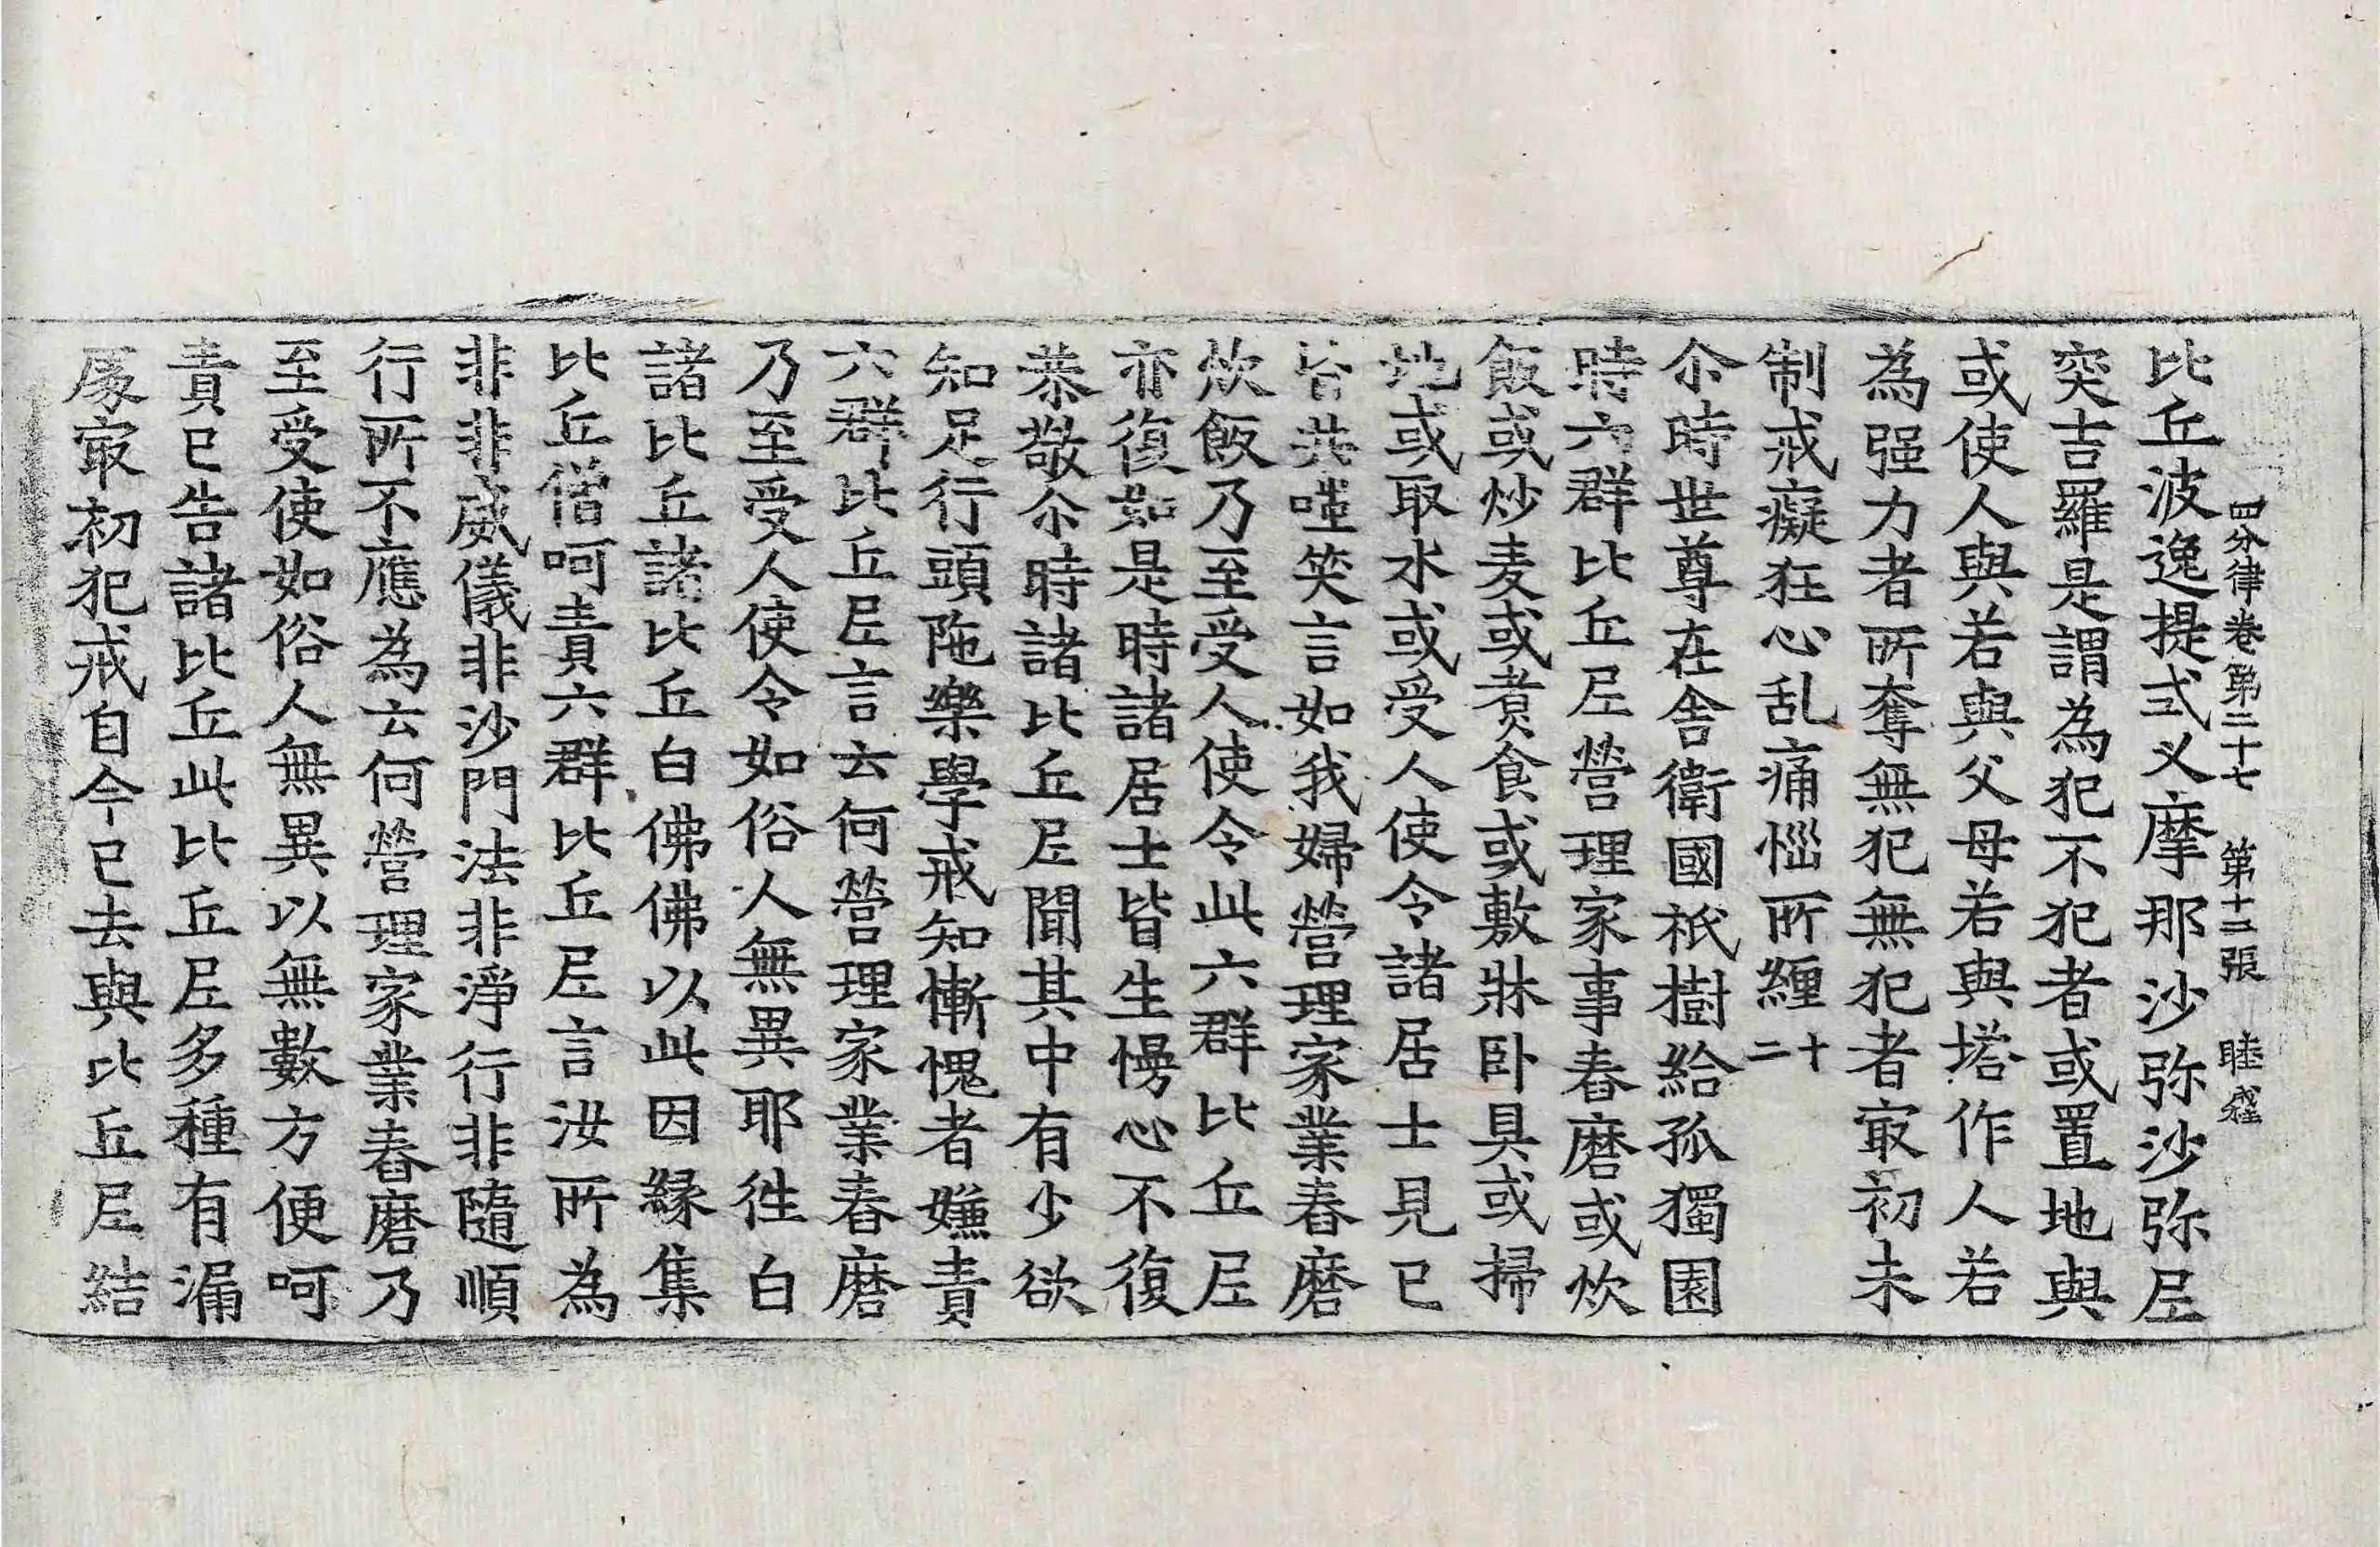 四分律卷第二十七 第十三張 睦
比丘波逸提式叉摩那沙弥沙弥尼
突吉羅是謂為犯不犯者或置地與
或使人與若與父母若與塔作人若
為强力者所奪無犯無犯者冣初未
制戒癡狂心乱痛惱所纏二十
尒時世尊在舍衛國祇樹給孤獨園
時六群比丘尼營理家事舂磨或炊
飯或炒麦或煑食或敷牀卧具或掃
地或取水或受人使令諸居士見已
皆共嗤笑言如我婦營理家業舂磨
炊飯乃至受人使令此六群比丘尼
亦復如是時諸居士皆生慢心不復
恭敬尒時諸比丘尼聞其中有少欲
知足行頭陁樂學戒知慚愧者嫌責
六群比丘尼言云何營理家業舂磨
乃至受人使令如俗人無異耶徃白
諸比丘諸比丘白佛佛以此因緣集
比丘僧呵責六群比丘尼言汝所為
非非威儀非沙門法非淨行非隨順
行所不應為云何營理家業舂磨乃
至受使如俗人無異以無數方便呵
責已告諸比丘此比丘尼多種有漏
處冣初犯戒自今已去與比丘尼結